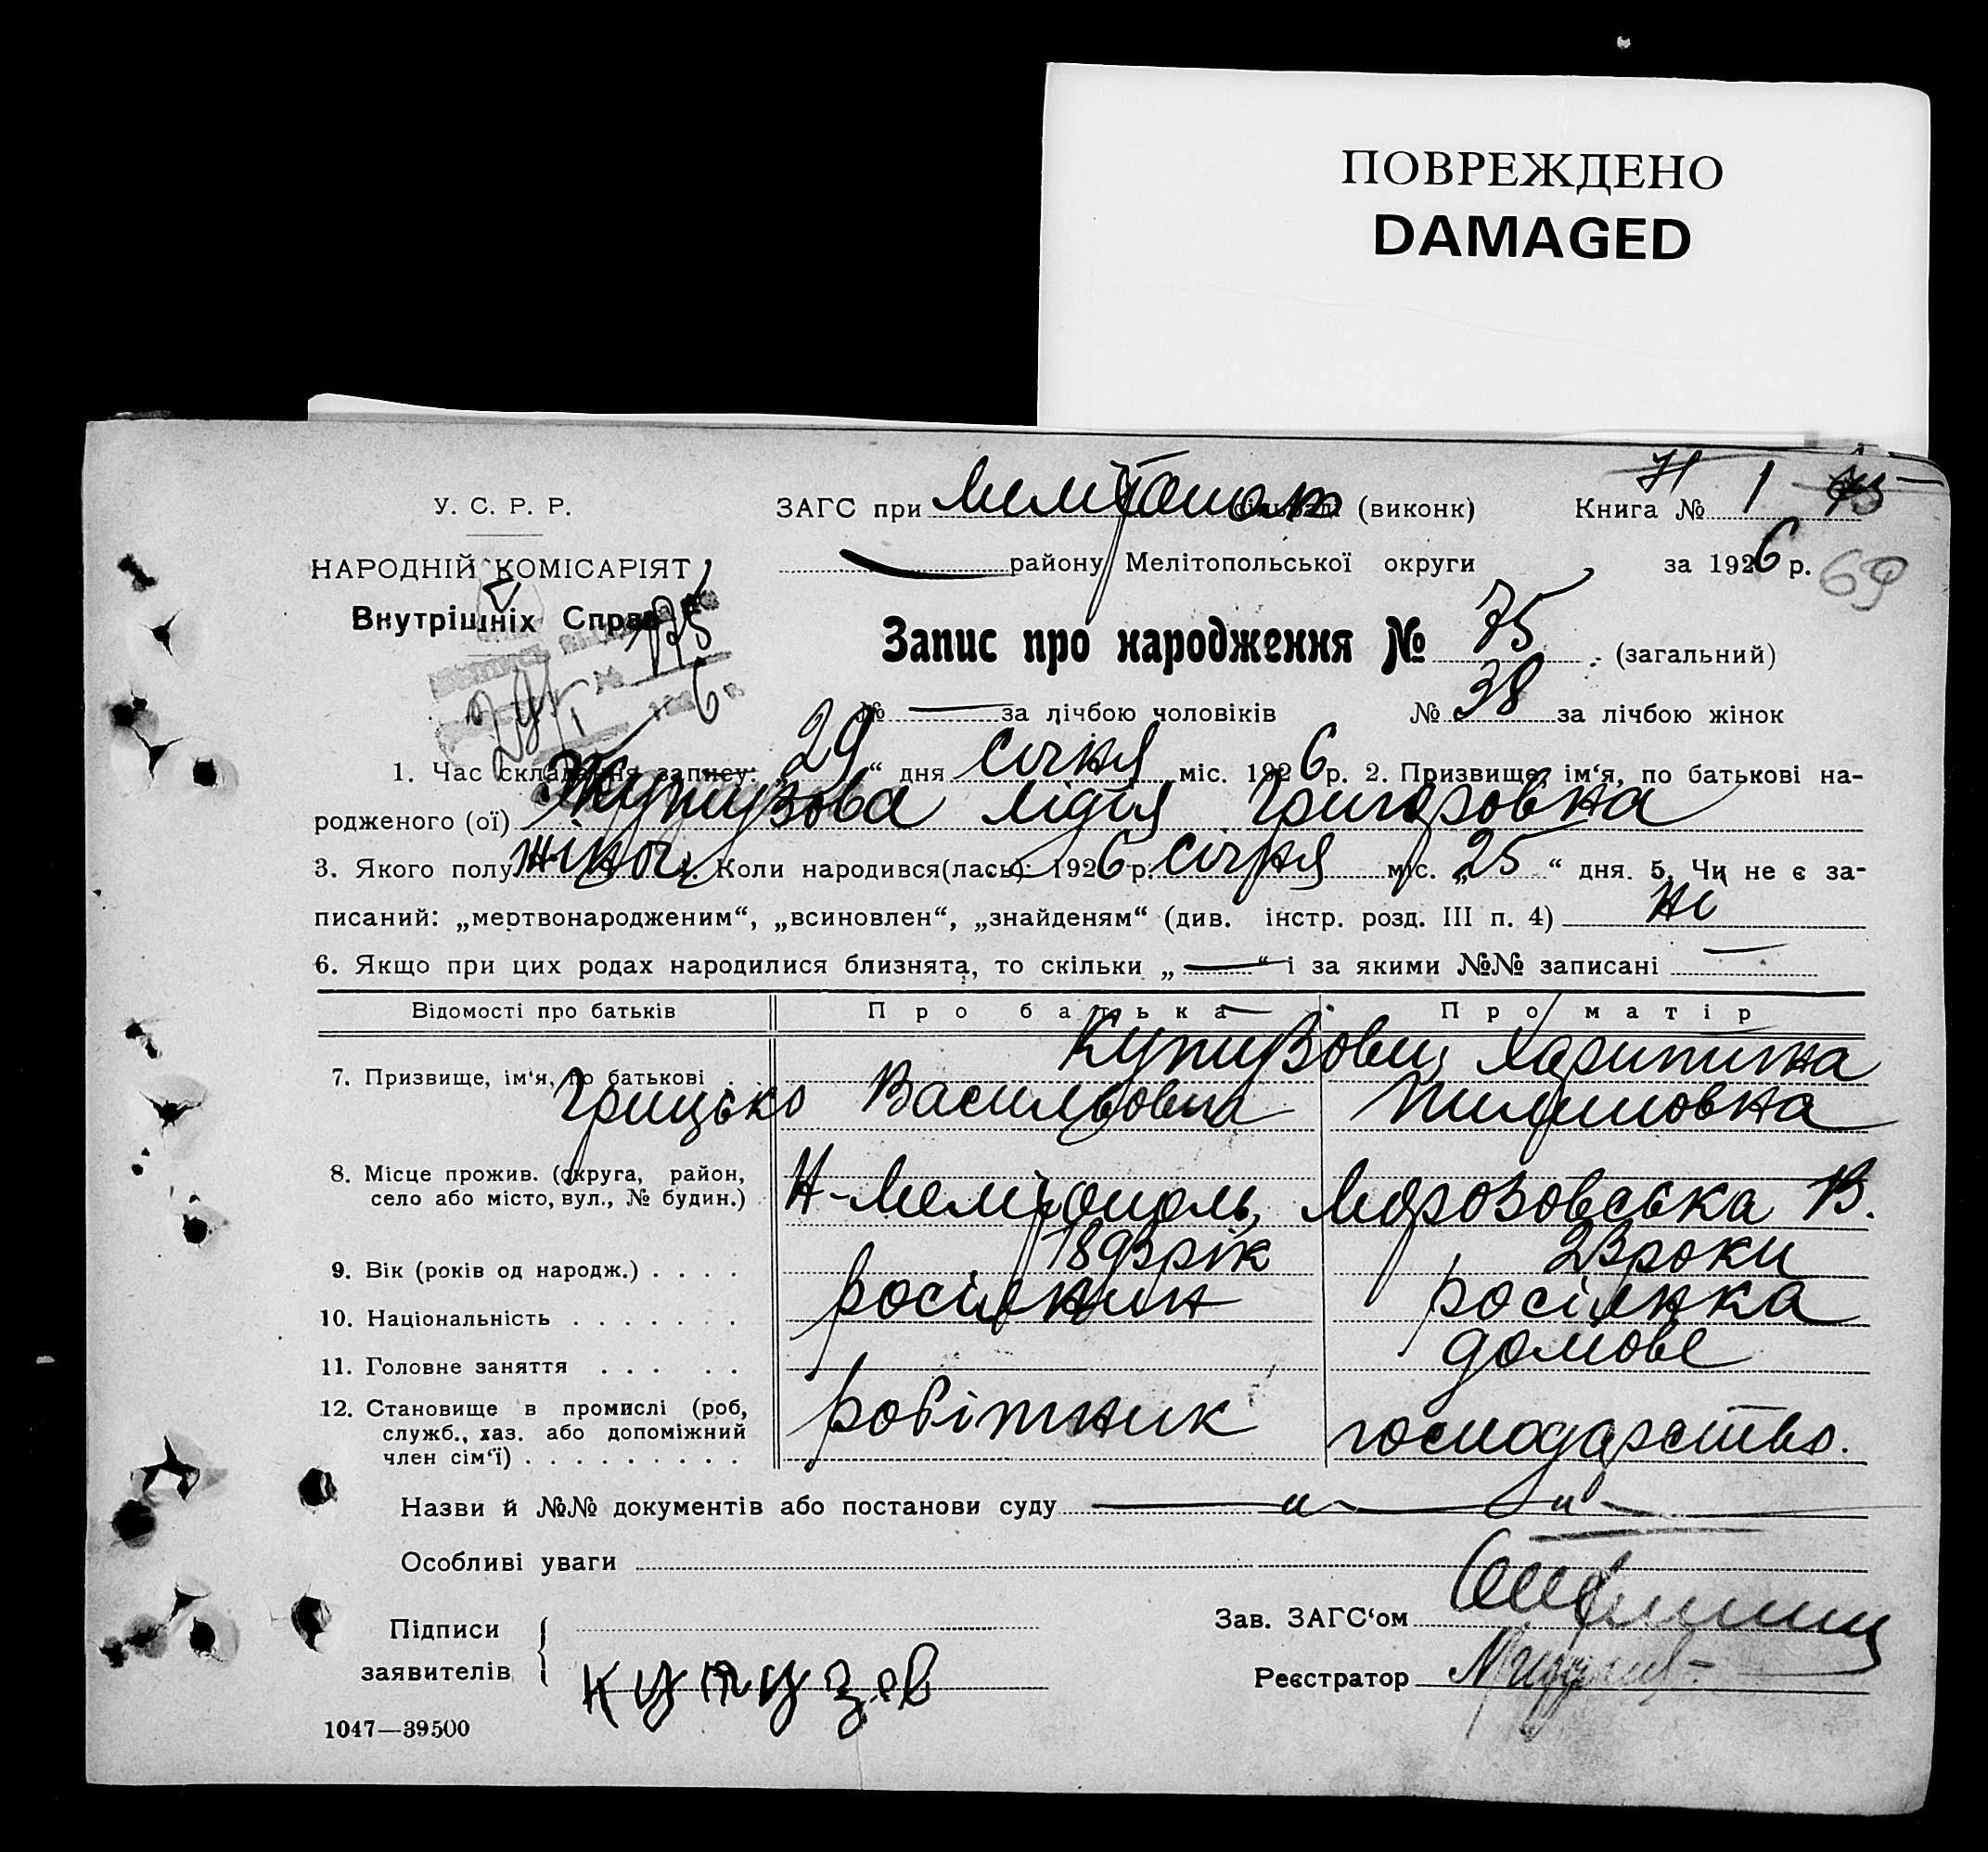 ПОВРЕЖДЕНО
DAMAGED
У. С. Р. Р.
НАРОДНІЙ КОМІСАРІЯТ
Внутрішніх Справ
ЗАГС при (виконк) Книга № 1
району Мелітопольської округи за 1926 р. 69
Запис про народження № 75 (загальний)
№ — за лічбою чоловіків № 38 за лічбою жінок
1. Час складання запису: „29“ дня Січня міс. 1926 р. 2. Призвище, ім‘я, по батькові на-
родженого (ої) Лідія Григоровна
3. Якого полу жіноч. Коли народився(лась): 1926 р. Січня міс. „25“ дня. 5. Чи не є за-
писаний: „мертвонародженим“, „всиновлен“, „знайденям“ (див. інстр. розд. III п. 4) ні
6. Якщо при цих родах народилися близнята, то скільки „—“ і за якими №№ записані —
Відомості про батьків Про батька Про матір
7. Призвище, ім‘я, по батькові Харитина
Грицько Василь
8. Місце прожив. (округа, район,
село або місто, вул., № будин.) Морозовська
9. Вік (років од народж.) . . . . 1893 рік 23 роки
10. Національність . . . . . . . росіянин росіянка
11. Головне заняття . . . . . домове
12. Становище в промислі (роб, робітник господарство.
служб., хаз. або допоміжний
член сім‘ї) . . . . . . . . .
Назви й №№ документів або постанови суду
Особливі уваги
Підписи
заявителів купузов
Зав. ЗАГС‘ом
Реєстратор
1047—39500